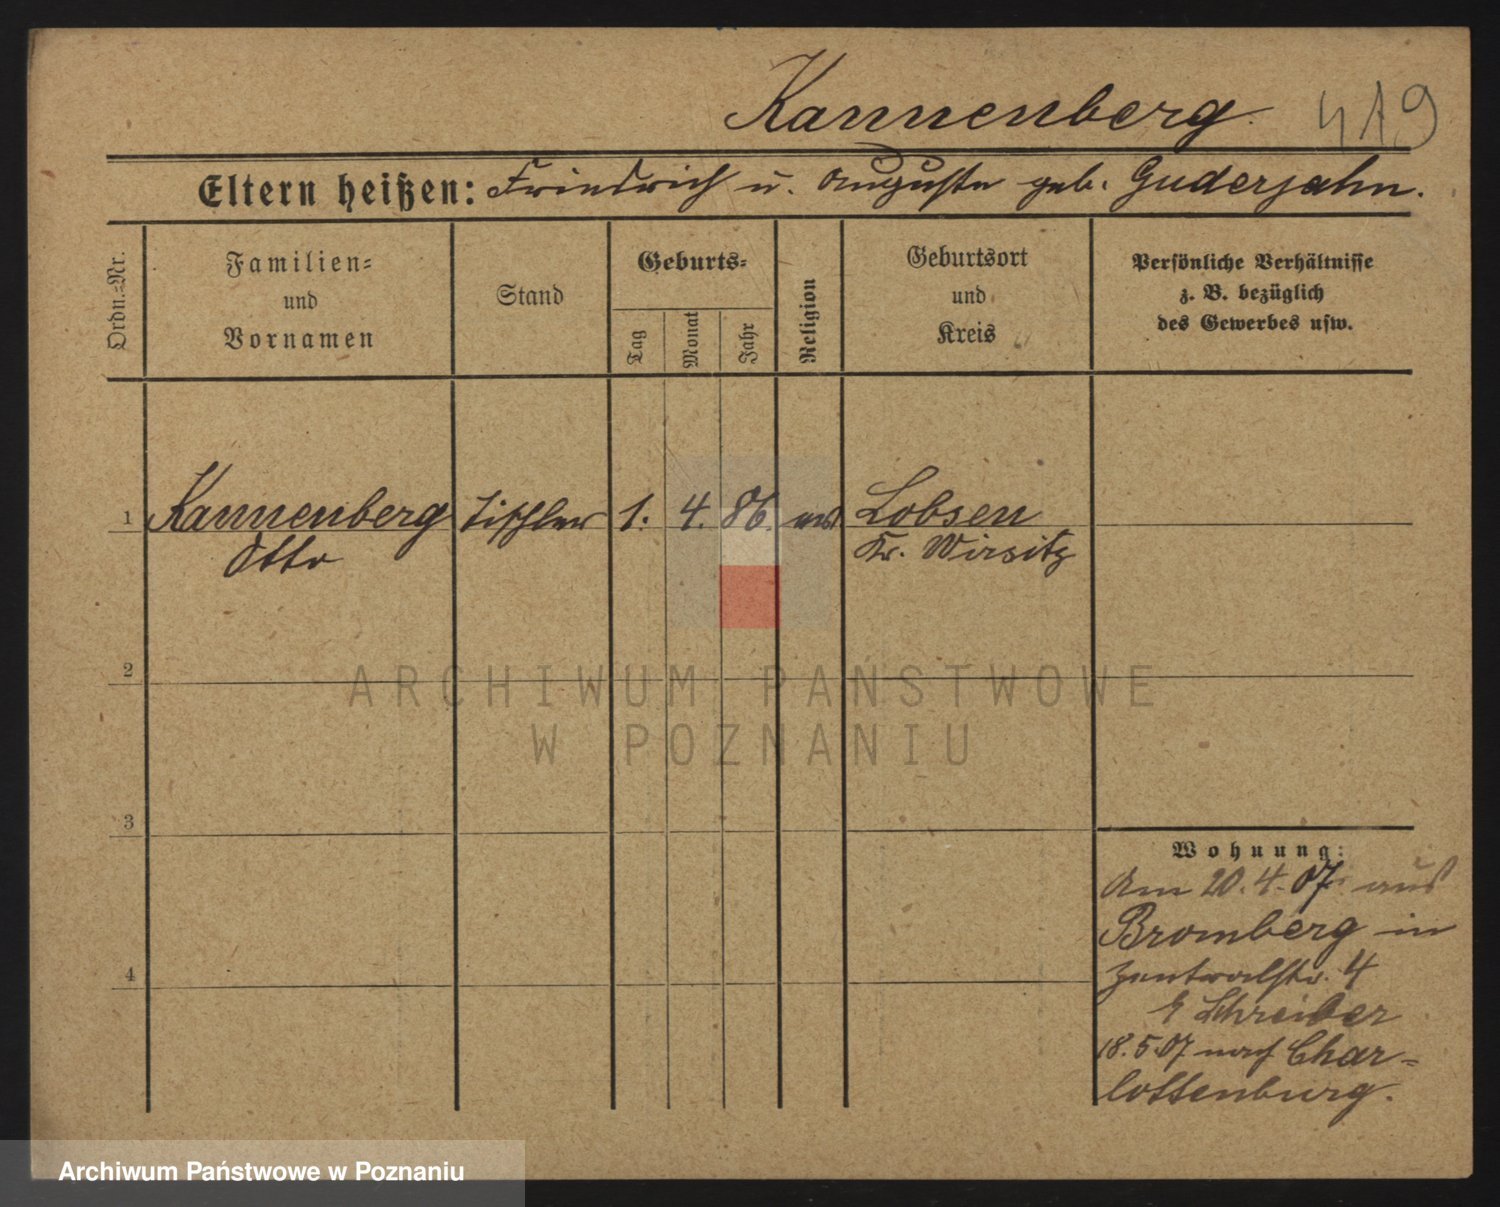 Kannenberg. 419
Eltern heißen: Friedrich u. Auguste geb. Guderjahn.
Ordn.=Nr.
Familien=
und
Vornamen
Stand
Geburts=
Tag
Monat
Jahr
Religion
Geburtsort
und
Kreis
Persönliche Verhältnisse
z. B. bezüglich
des Gewerbes usw.
1 Kannenberg Tischler 1. 4. 86. ev. Lobsen
Otto Kr. Wirsitz
2
ARCHIWUM PAŃSTWOWE
W POZNANIU
3
Wohnung:
Am 20.4.07 aus
Bromberg in
Zentralstr. 4
4
Schreiber
18.5.07 nach Char=
lottenburg.
Archiwum Państwowe w Poznaniu